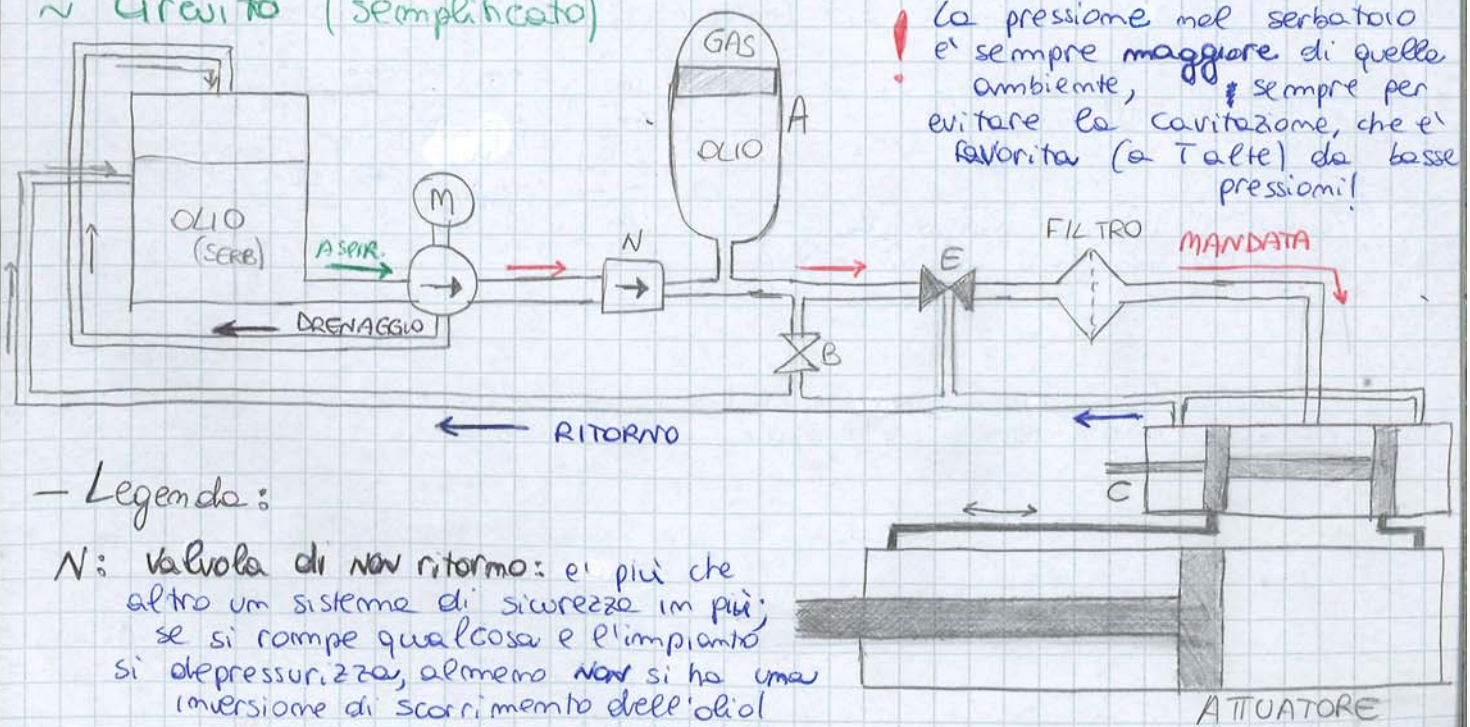 ~ Circuito (semplificato)
! La pressione nel serbatoio
e' sempre maggiore di quella
ambiente, sempre per
evitare la cavitazione, che e'
favorita (a T alte) da basse
pressioni!
GAS
OLIO
A
OLIO
(SERB)
ASPIR.
M
N
E
FILTRO
MANDATA
DRENAGGIO
B
RITORNO
C
- Legenda:
N: Valvola di NON ritorno: e' più che
altro un sistema di sicurezza in più;
se si rompe qualcosa e l'impianto
si depressurizza, almeno NON si ha una
inversione di scorrimento dell'olio!
ATTUATORE